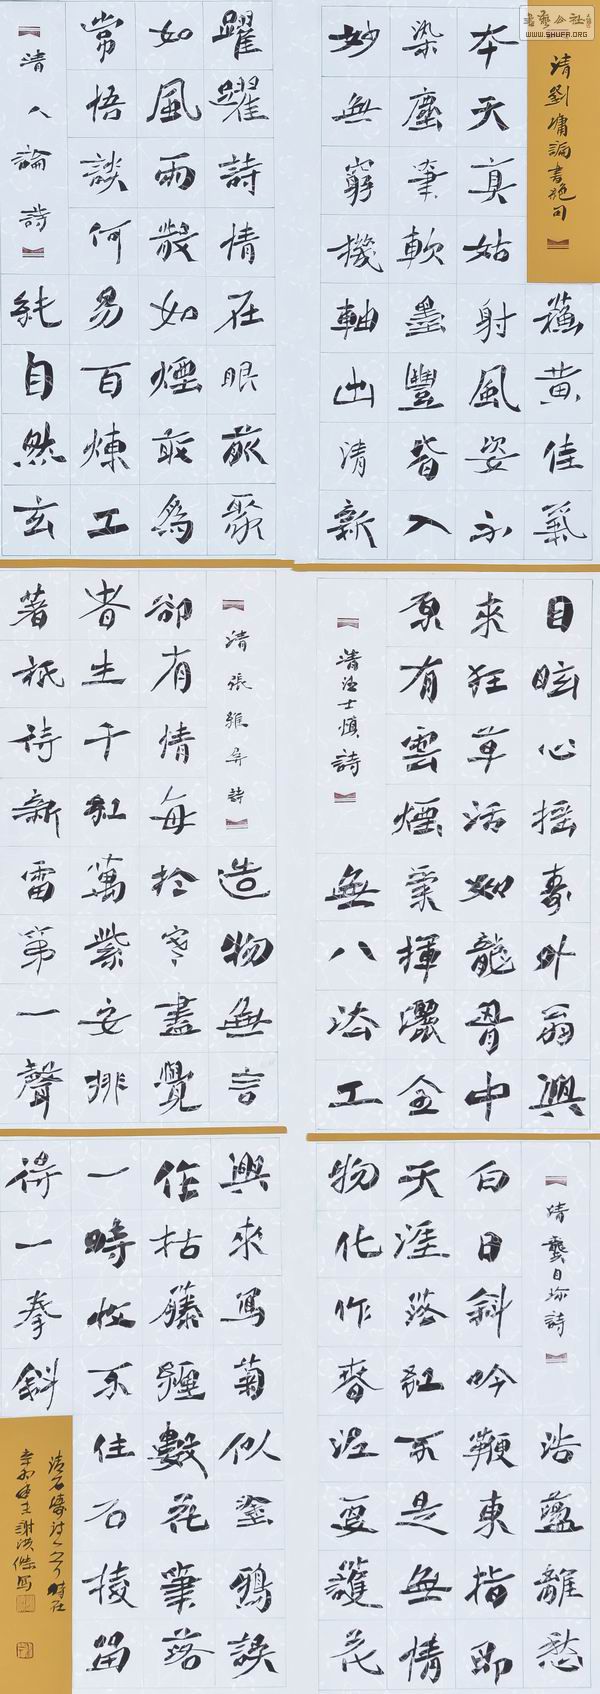 书艺公社
WWW.SHUFA.ORG
清劉墉論書絕句
蘇黃佳氣
本天真姑射風姿不
染塵筆軟墨豐皆入
妙無窮機軸出清新
躍躍詩情在眼前聚
如風雨散如煙敢為
常悟談何易百煉工
純自然玄
清人論詩
目眩心搖壽外翁興
來狂草活如龍胷中
原有雲煙氣揮灑全
無八法工
清汪士慎詩
清張維屏詩
造物無言
卻有情每於寒盡覺
春生千紅萬紫安排
著祇待新雷第一聲
清龔自珍詩
浩蕩離愁
白日斜吟鞭東指即
天涯落紅不是無情
物化作春泥更護花
興來寫菊似塗鴉誤
作枯藤纏數花筆落
一時收不住石棱留
得一拳斜
清石濤詩 時在
謝洪 寫